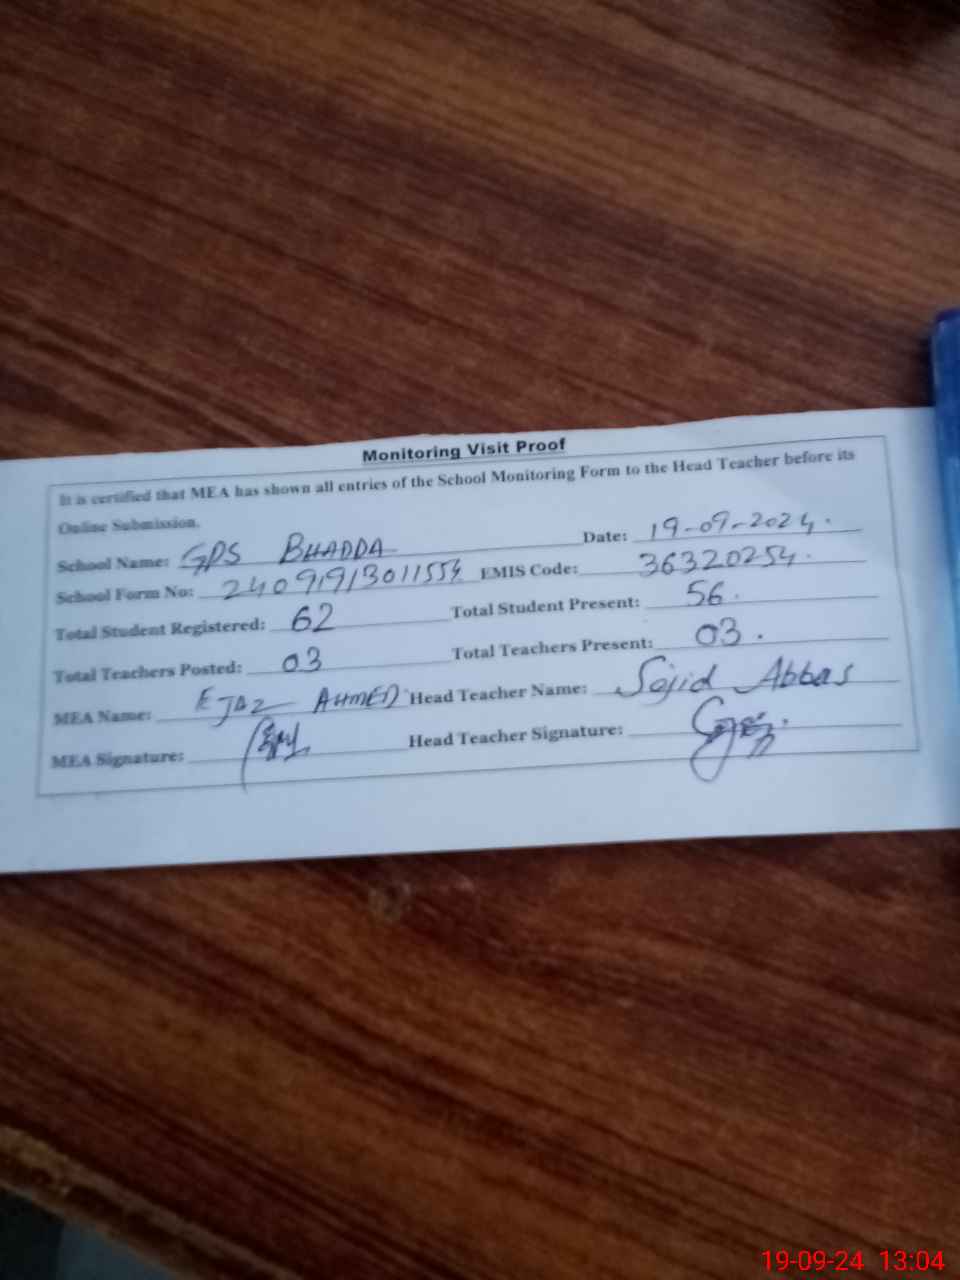 Monitoring Visit Proof
It is certified that MEA has shown all entries of the School Monitoring Form to the Head Teacher before its
Online Submission.
School Name: GPS BHADDA Date: 19-09-2024.
School Form No: 24091913011554 EMIS Code: 36320254.
Total Student Registered: 62 Total Student Present: 56.
Total Teachers Posted: 03 Total Teachers Present: 03.
MEA Name: EJAZ AHMED Head Teacher Name: Sajid Abbas
MEA Signature: Head Teacher Signature:
19-09-24 13:04